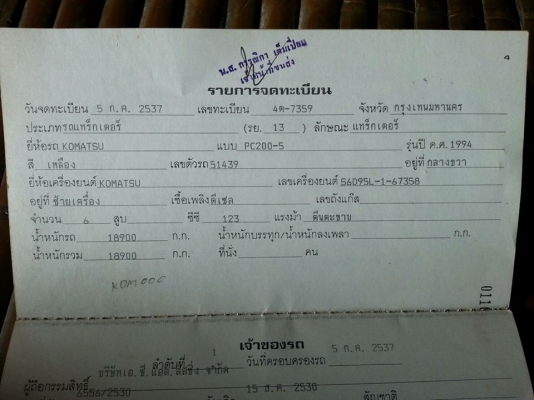 4
น.ส. กรรณิกา
เจ้าหน้าที่ขนส่ง
รายการจดทะเบียน
วันจดทะเบียน 5 ก.ค. 2537 เลขทะเบียน 4ต-7359 จังหวัด กรุงเทพมหานคร
ประเภทรถแทร็กเตอร์ (รย. 13 ) ลักษณะ แทร็กเตอร์
ยี่ห้อรถ KOMATSU แบบ PC200-5 รุ่นปี ค.ศ. 1994
สี เหลือง เลขตัวรถ 51439 อยู่ที่ กลางขวา
ยี่ห้อเครื่องยนต์ KOMATSU เลขเครื่องยนต์ S6D95L-1-67358
อยู่ที่ ซ้ายเครื่อง เชื้อเพลิง ดีเซล เลขถังแก๊ส
จำนวน 6 สูบ ซีซี 123 แรงม้า ตีนตะขาบ
น้ำหนักรถ 18900 ก.ก. น้ำหนักบรรทุก/น้ำหนักลงเพลา ก.ก.
น้ำหนักรวม 18900 ก.ก. ที่นั่ง คน
KOM006
011
เจ้าของรถ
ลำดับที่ 1 วันที่ครอบครองรถ 5 ก.ค. 2537
ผู้ถือกรรมสิทธิ์ บริษัทเอ.ซี. แอล. ลีสซิ่ง จำกัด
6556/2530 15 ธ.ค. 2530 สัญชาติ